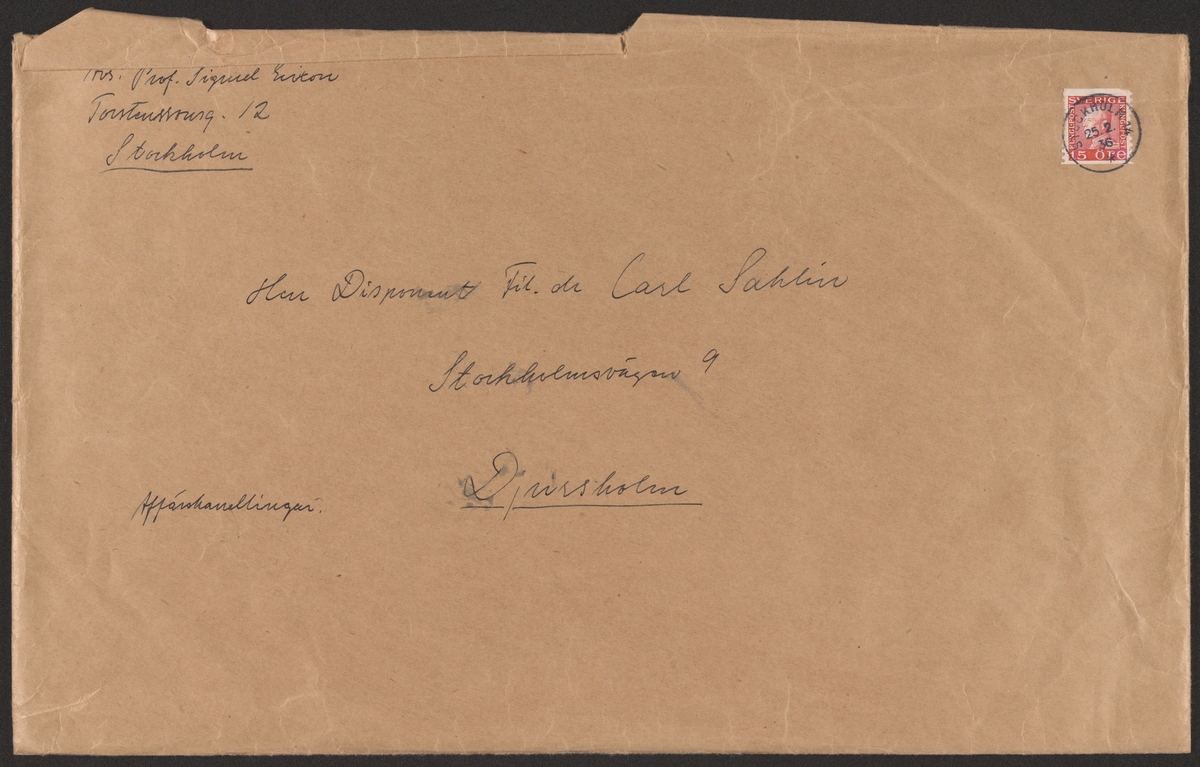 Avs. Prof. Sigurd Erixon
Torstenssonsg. 12
Stockholm
SVERIGE
15 ÖRE
STOCKHOLM 14
25.2.
36
Herr Disponent Fil. dr Carl Sahlin
Stockholmsvägen 9
Djursholm
Affärshandlingar.